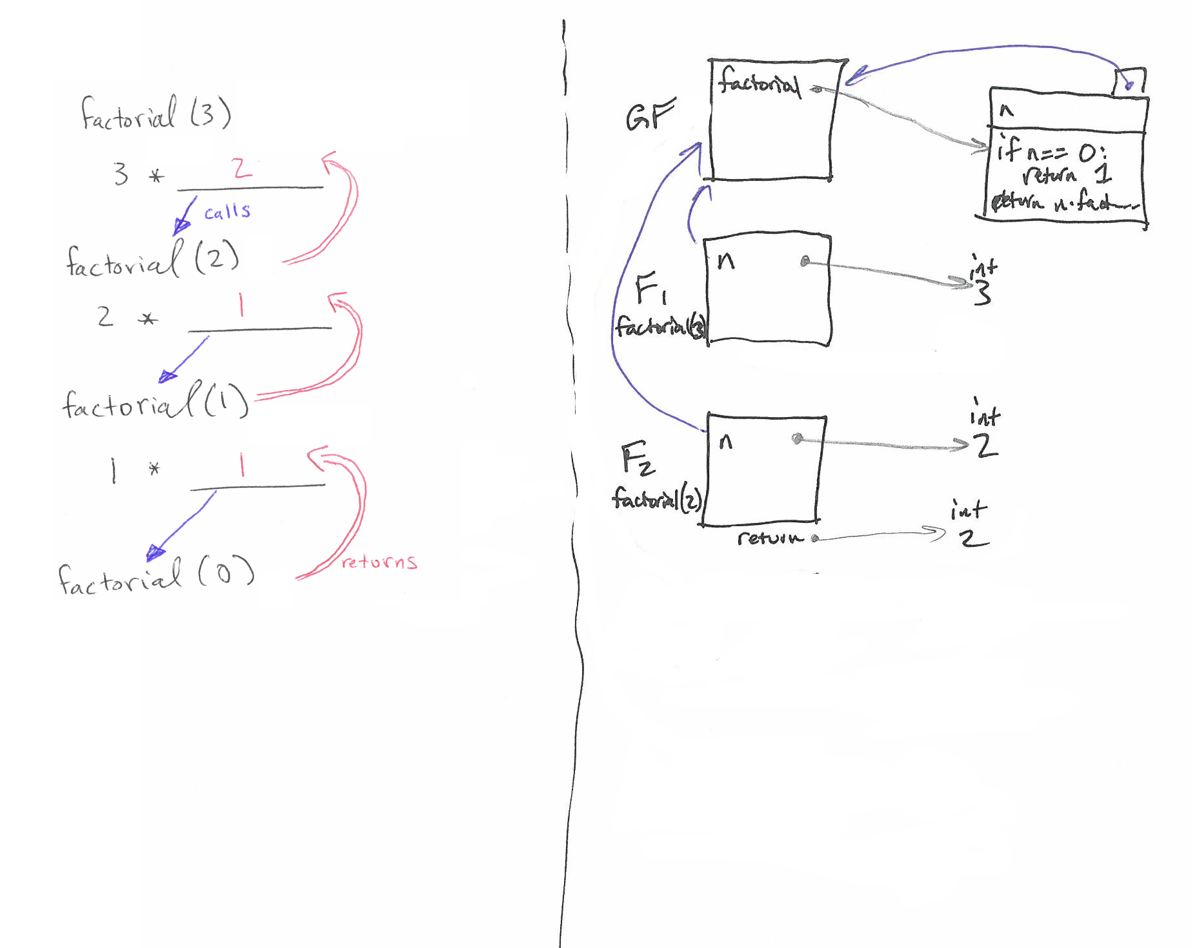 factorial (3)
3 * 2
calls
factorial (2)
2 * 1
factorial (1)
1 * 1
factorial (0)
returns
GF
factorial
n
if n == 0:
return 1
return n·fact
F1
factorial(3)
n
int
3
F2
factorial(2)
n
int
2
return
int
2